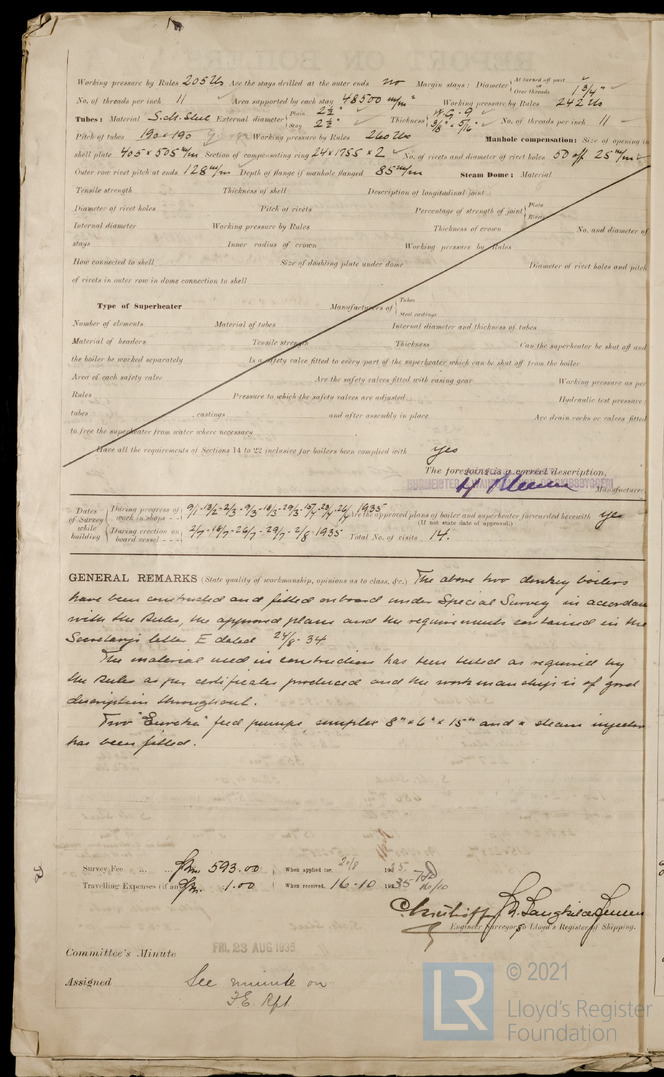 Working pressure by Rules 205 lbs Are the stays drilled at the outer ends no Margin stays: Diameter { At turned off part or Over threads 1 3/4"
No. of threads per inch 11 Area supported by each stay 48500 m/m² Working pressure by Rules 242 lbs
Tubes: Material S.M. Steel External diameter { Plain 2 1/2" Stay 2 1/2" Thickness { W.G. 9 3/8" 5/16" No. of threads per inch 11
Pitch of tubes 190 x 190 Working pressure by Rules 260 lbs Manhole compensation: Size of opening in
shell plate 405 x 505 m/m Section of compensating ring 24 x 1755 x 2 No. of rivets and diameter of rivet holes 50 off 25 m/m
Outer row rivet pitch at ends 128 m/m Depth of flange if manhole flanged 85 m/m Steam Dome: Material
Tensile strength Thickness of shell Description of longitudinal joint
Diameter of rivet holes Pitch of rivets Percentage of strength of joint { Plate Rivets
Internal diameter Working pressure by Rules Thickness of crown No. and diameter of
stays Inner radius of crown Working pressure by Rules
How connected to shell Size of doubling plate under dome Diameter of rivet holes and pitch
of rivets in outer row in dome connection to shell
Type of Superheater Manufacturers of { Tubes Steel castings
Number of elements Material of tubes Internal diameter and thickness of tubes
Material of headers Tensile strength Thickness Can the superheater be shut off and
the boiler be worked separately Is a safety valve fitted to every part of the superheater which can be shut off from the boiler
Area of each safety valve Are the safety valves fitted with easing gear Working pressure as per
Rules Pressure to which the safety valves are adjusted Hydraulic test pressure:
tubes castings and after assembly in place Are drain cocks or valves fitted
to free the superheater from water where necessary
Have all the requirements of Sections 14 to 22 inclusive for boilers been complied with yes
The foregoing is a correct description,
Manufacturer.
Dates of Survey while building { During progress of work in shops - - 9/1-13/2-2/3-9/3-19/3-29/3 1935 Are the approved plans of boiler and superheater forwarded herewith yes
(If not state date of approval.)
During erection on board vessel - - - 2/7-16/7-26/7-29/7-2/8-1935 Total No. of visits 14.
GENERAL REMARKS (State quality of workmanship, opinions as to class, &c.) The above two donkey boilers
have been constructed and fitted onboard under Special Survey in accordance
with the Rules, the approved plans and the requirements contained in the
Secretary's letter E dated 24/8-34
The material used in construction has been tested as required by
the Rules as per certificates produced and the workmanship is of good
description throughout.
Two "Eureka" feed pumps simplex 8" x 6" x 15" and a steam injector
has been fitted.
Survey Fee ... ... 593.00 When applied for, 20/8 1935
Travelling Expenses (if any) 1.00 When received, 16-10 1935
Engineer Surveyor to Lloyd's Register of Shipping.
Committee's Minute FRI. 23 AUG 1935
Assigned See minute on
F.E. Rpt
LR © 2021
Lloyd's Register
Foundation